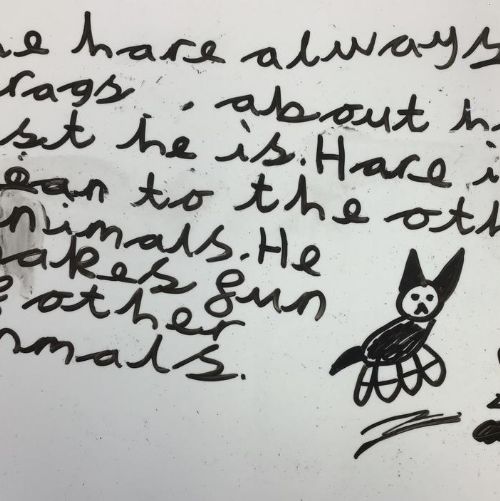 he hare always
rags. about h
st he is. Hare i
ean to the oth
nimals. He
akes fun
other
nmals.